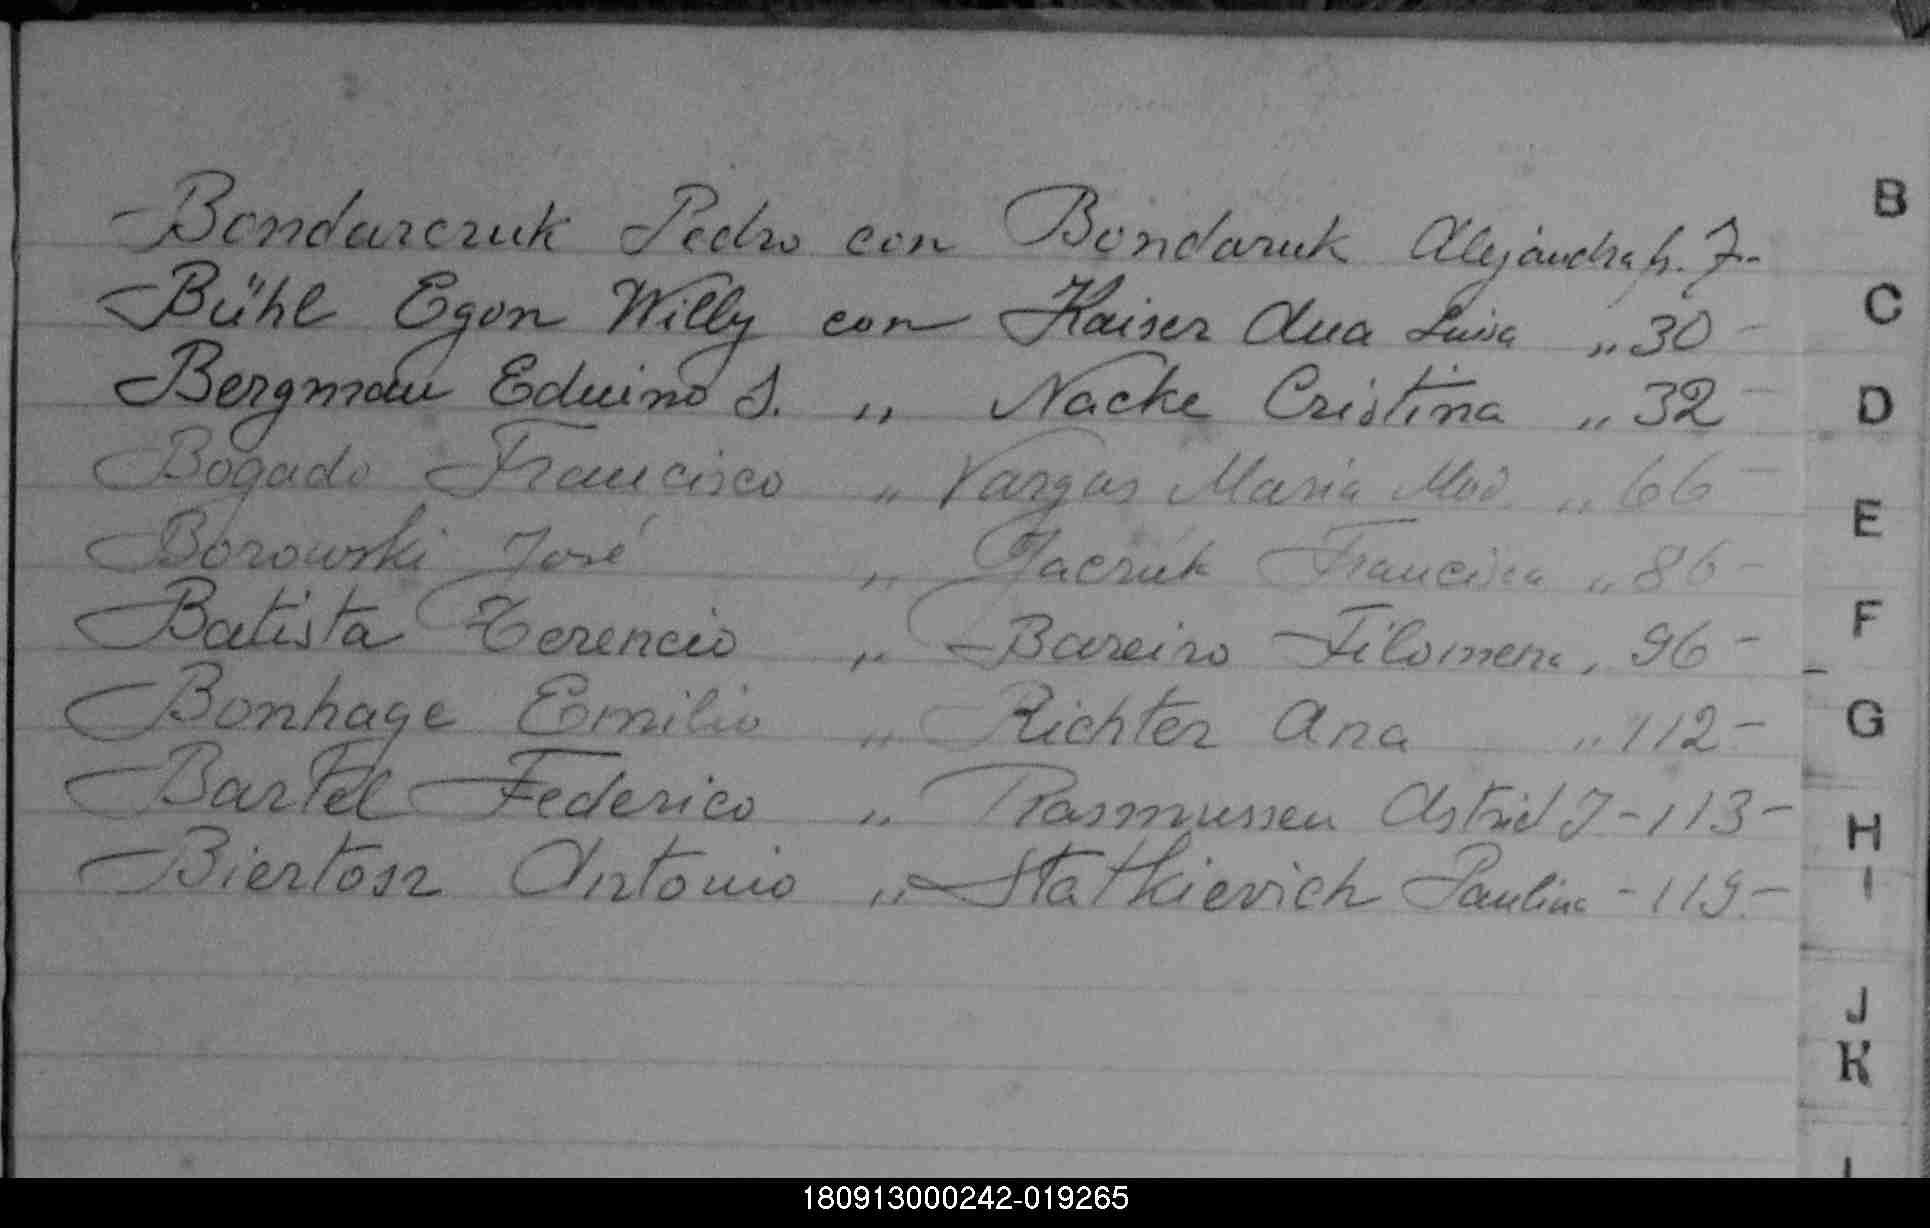 Bondarczuk Pedro con Bondaruk Alejandra f. 7-
Bühl Egon Willy con Kaiser Ana Luisa „ 30 -
Bergman Eduino S. „ Nacke Cristina „ 32 -
Bogado Francisco „ Vargas Maria „ 66 -
Borowski José „ Francisca „ 86 -
Batista Terencio „ Bareiro Filomena „ 96 -
Bonhage Emilio „ Richter Ana „ 112 -
Bartel Federico „ Rasmussen Astrid J - 113 -
Biertosz Antonio „ Statkievich Paulina - 119 -
B
C
D
E
F
G
H
I
J
K
L
180913000242-019265